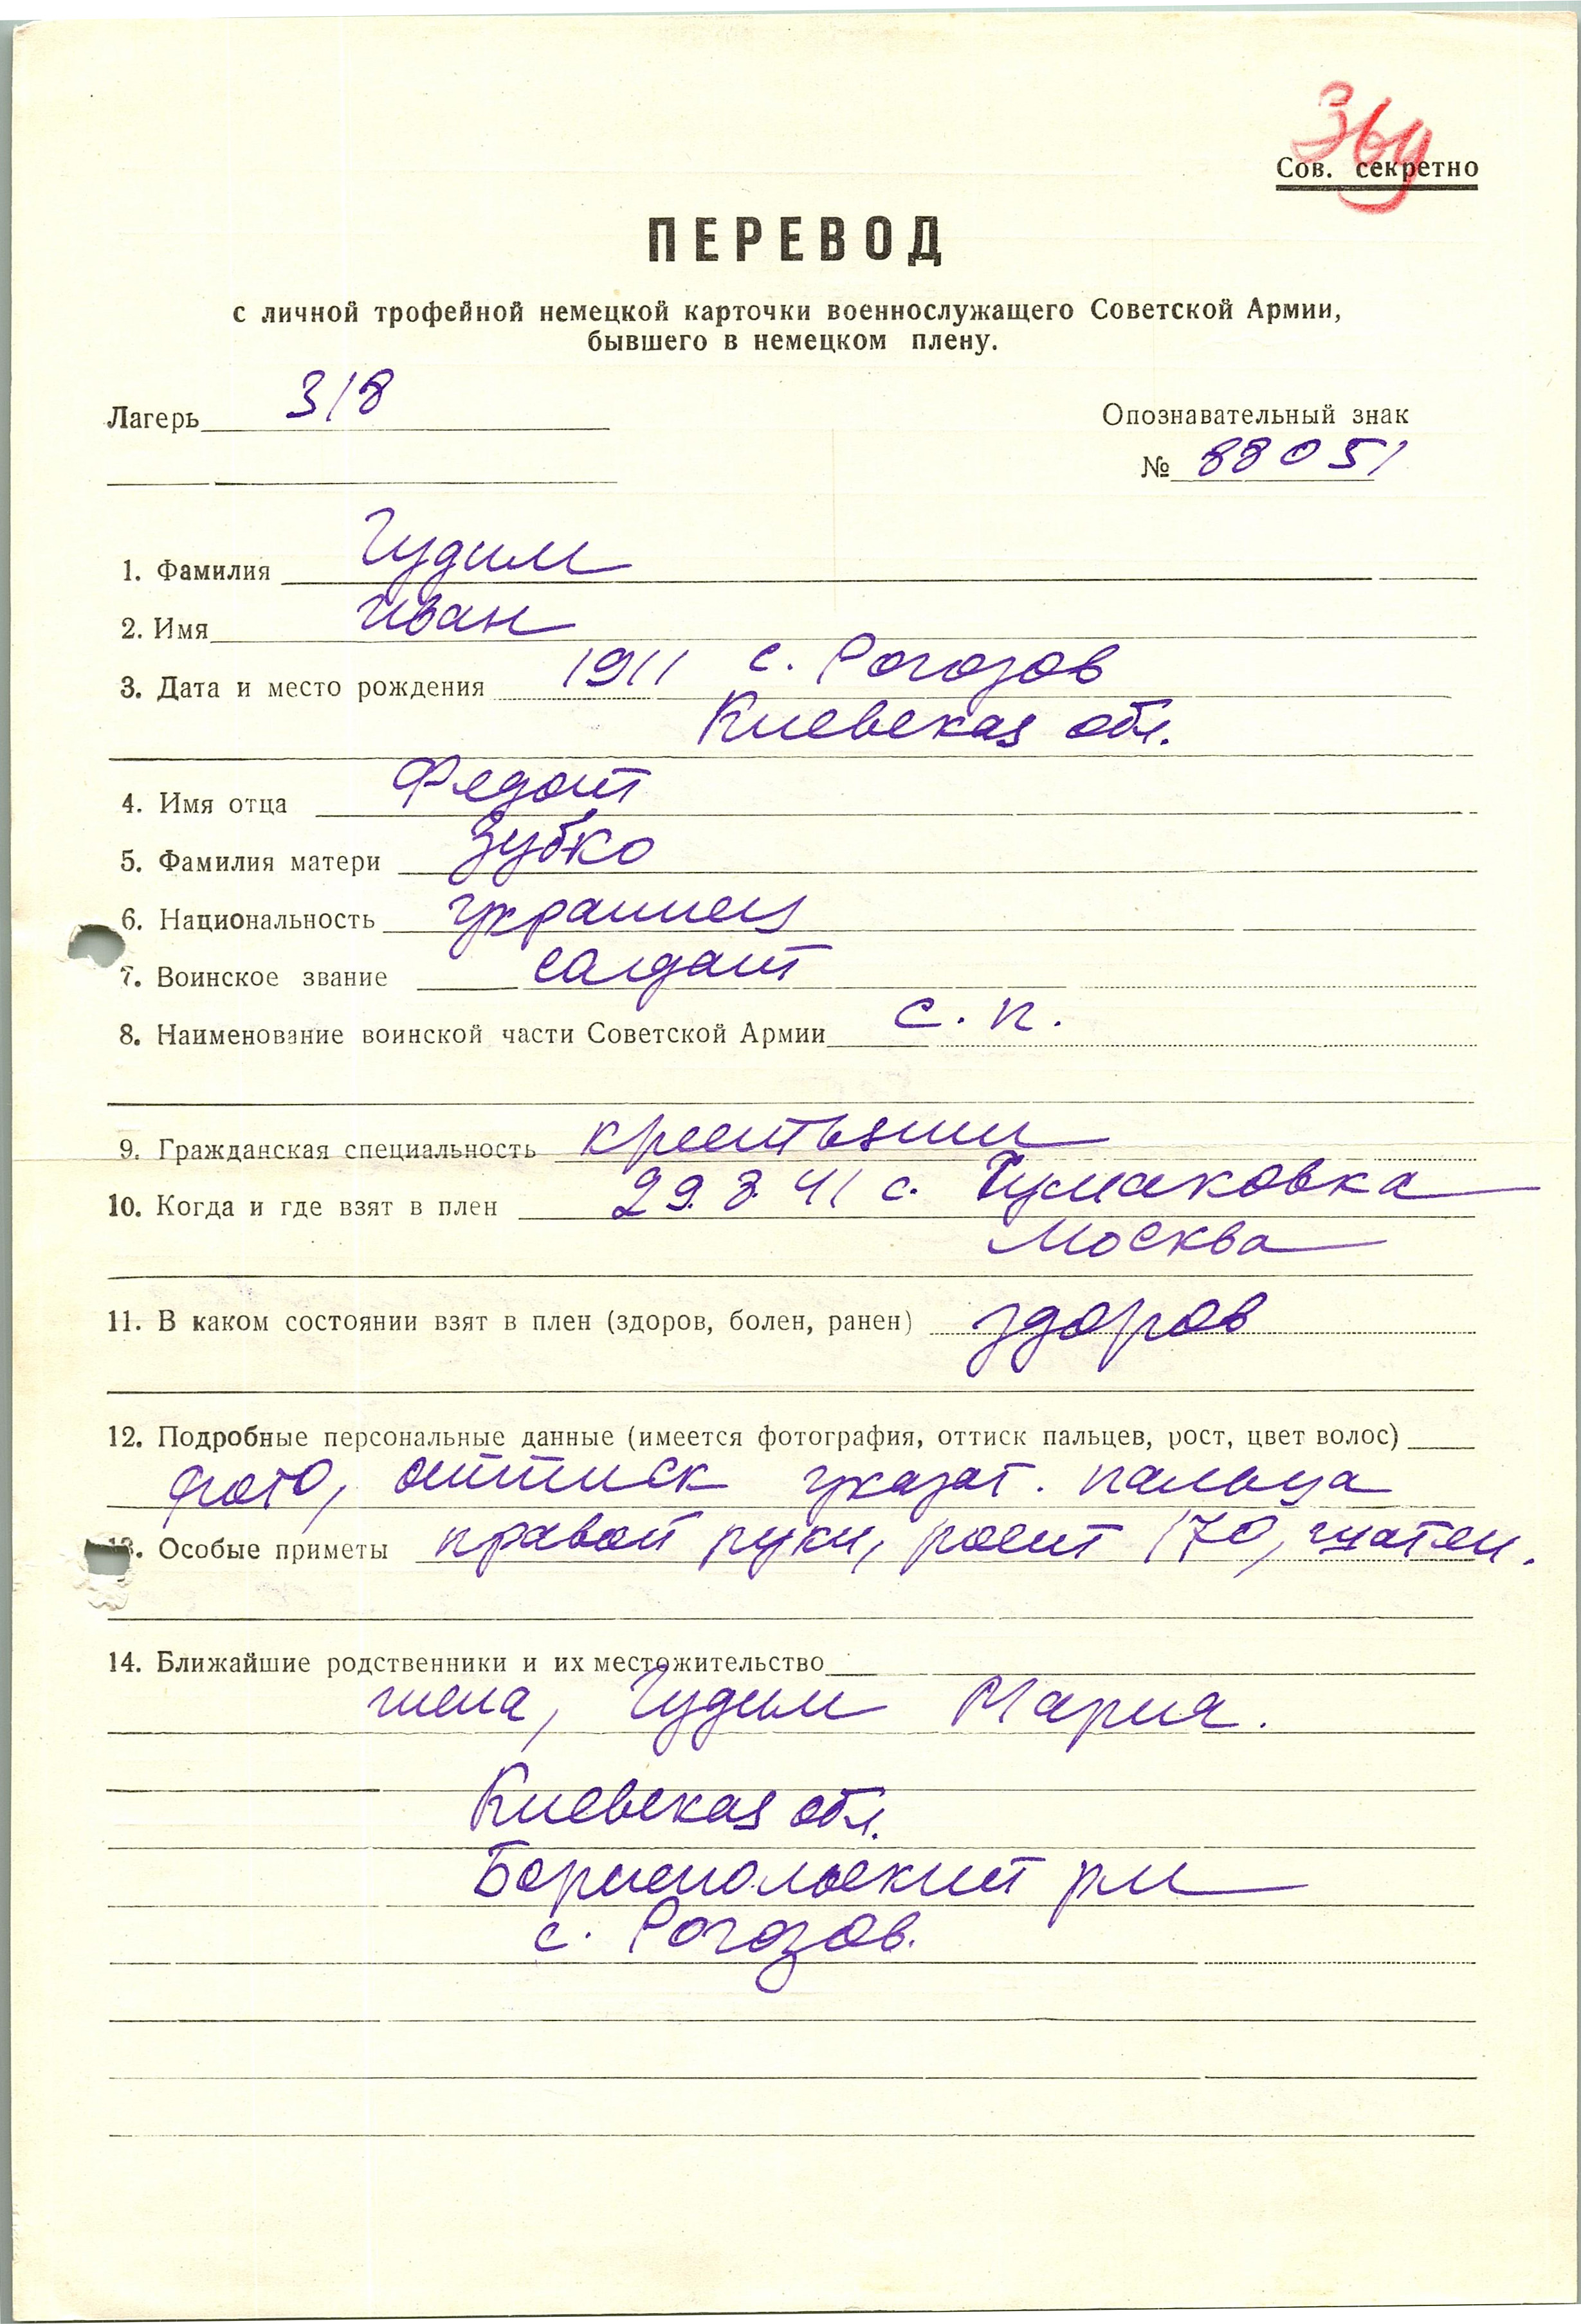 36у
Сов. секретно
ПЕРЕВОД
с личной трофейной немецкой карточки военнослужащего Советской Армии,
бывшего в немецком плену.
Лагерь 318
Опознавательный знак
№ 88051
1. Фамилия Гудим
2. Имя Иван
3. Дата и место рождения 1911 с. Рогозов
Киевская обл.
4. Имя отца Федот
5. Фамилия матери Зубко
6. Национальность украинец
7. Воинское звание солдат
8. Наименование воинской части Советской Армии с. п.
9. Гражданская специальность крестьянин
10. Когда и где взят в плен 29.8.41 с. Чумаковка
Москва
11. В каком состоянии взят в плен (здоров, болен, ранен) здоров
12. Подробные персональные данные (имеется фотография, оттиск пальцев, рост, цвет волос)
фото, оттиск указат. пальца
13. Особые приметы правой руки, рост 170, шатен.
14. Ближайшие родственники и их местожительство
жена, Гудим Мария.
Киевская обл.
Бориспольский рн
с. Рогозов.